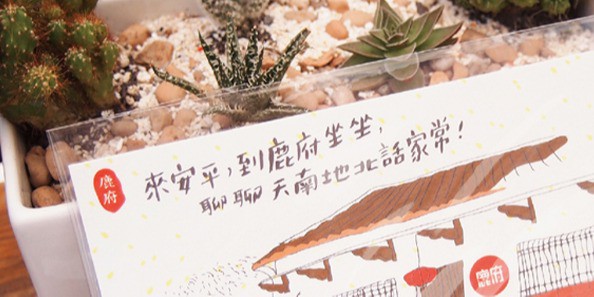 鹿府
來安平,到鹿府坐坐,
聊聊天南地北話家常!
鹿府